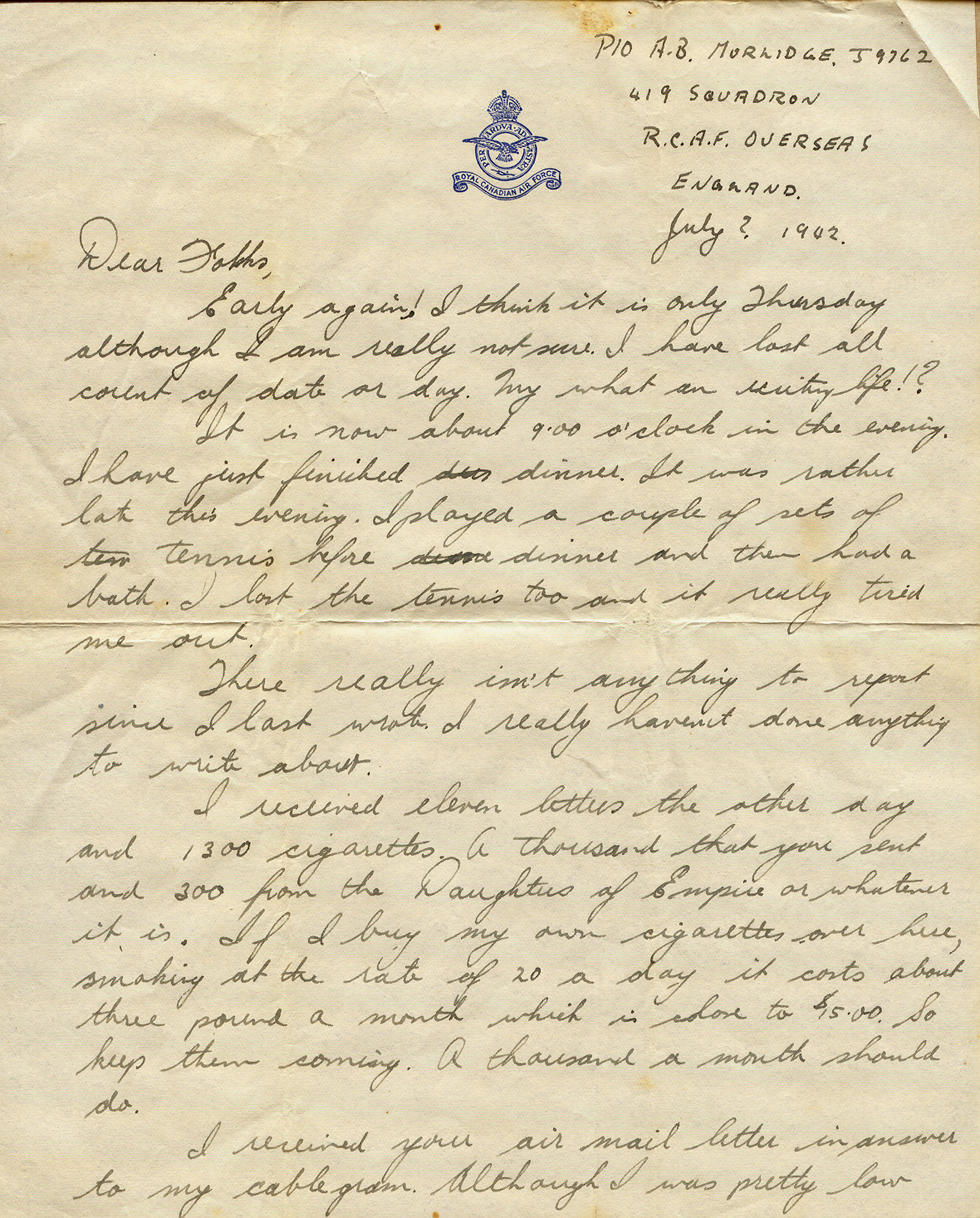 P/O A.B. MORLIDGE. J9762
419 SQUADRON
R.C.A.F. OVERSEAS
ENGLAND.
July ? 1942.
PER ARDVA AD ASTRA
ROYAL CANADIAN AIR FORCE
Dear Folks,
Early again! I think it is only Thursday
although I am really not sure. I have lost all
count of date or day. My what an exciting life!?
It is now about 9.00 o'clock in the evening.
I have just finished dinner. It was rather
late this evening. I played a couple of sets of
ten tennis before dinner and then had a
bath. I lost the tennis too and it really tired
me out.
There really isn't anything to report
since I last wrote. I really havent done anything
to write about.
I received eleven letters the other day
and 1300 cigarettes. A thousand that you sent
and 300 from the Daughters of Empire or whatever
it is. If I buy my own cigarettes over here,
smoking at the rate of 20 a day it costs about
three pound a month which is close to $15.00. So
keep them coming. A thousand a month should
do.
I received your air mail letter in answer
to my cablegram. Although I was pretty low